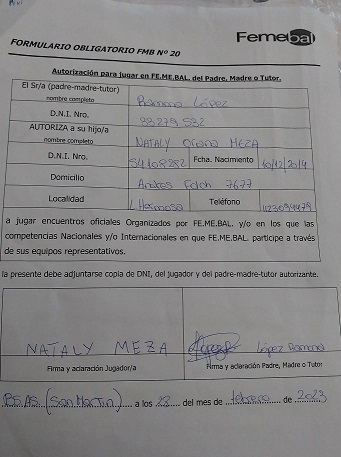 Femebal
FORMULARIO OBLIGATORIO FMB Nº 20
Autorización para jugar en FE.ME.BAL. del Padre, Madre o Tutor.
El Sr/a (padre-madre-tutor) nombre completo Ramona López
D.N.I. Nro.
AUTORIZA a su hijo/a nombre completo NATALY Oriana MEZA
D.N.I. Nro. 54108282 Fcha. Nacimiento 10/12/2014
Domicilio 7677
Localidad L Hermosa Teléfono
a jugar encuentros oficiales Organizados por FE.ME.BAL. y/o en los que las
competencias Nacionales y/o Internacionales en que FE.ME.BAL. participe a través
de sus equipos representativos.
la presente debe adjuntarse copia de DNI, del jugador y del padre-madre-tutor autorizante.
NATALY MEZA López Ramona
Firma y aclaración Jugador/a Firma y aclaración Padre, Madre o Tutor
BS.AS. (San Martin) a los 28 del mes de febrero de 2023